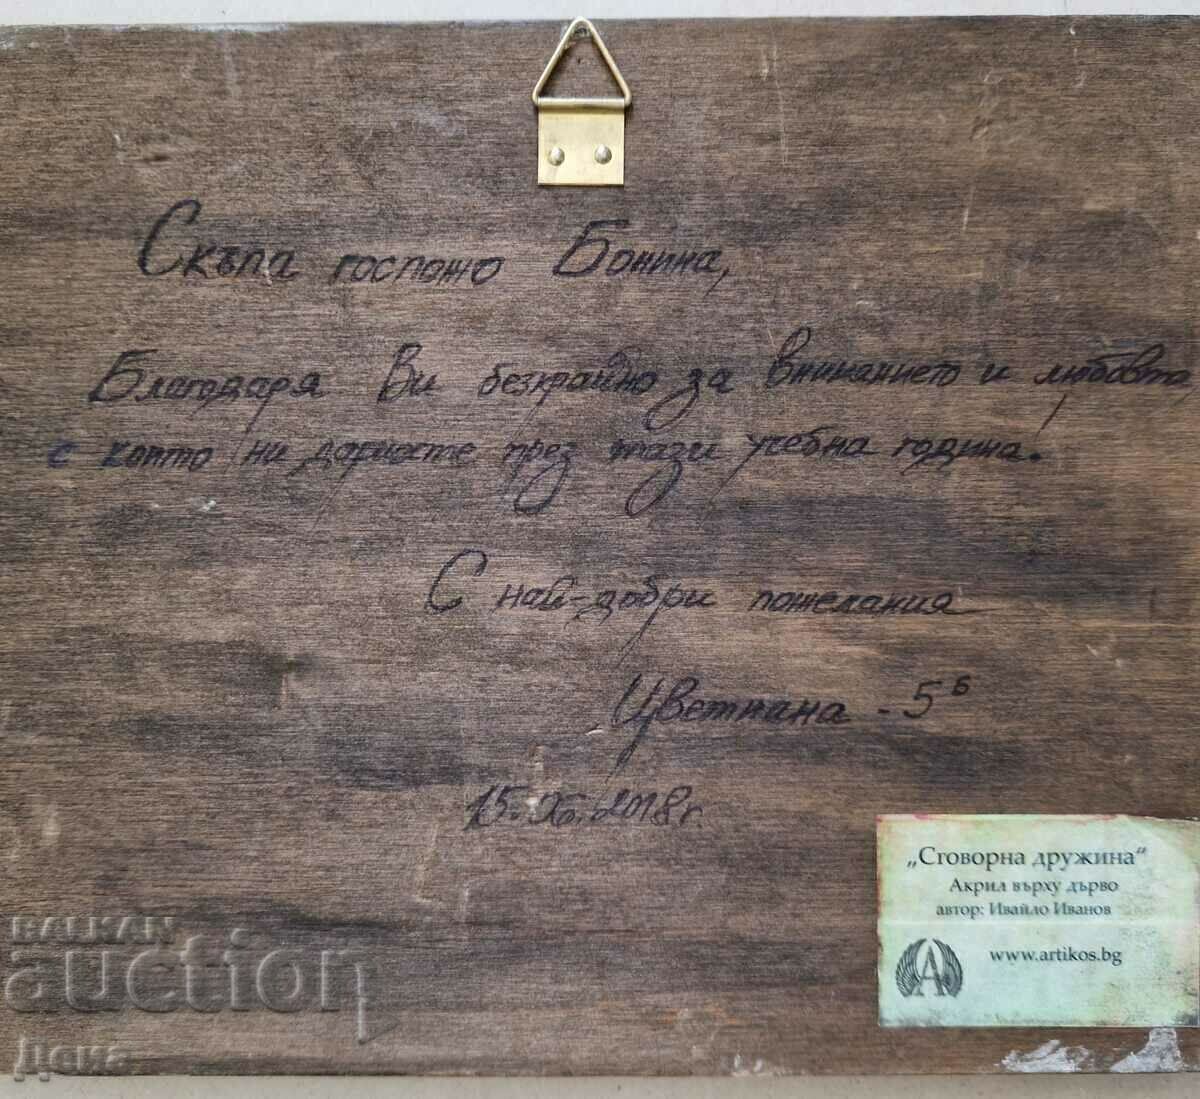 Скъпа госпожо Бонина,
Благодаря Ви безкрайно за вниманието и любовта,
с която ни дарихте през тази учебна година!
С най-добри пожелания
Цветиана - 5б
2018 г.
„Сговорна дружина“
Акрил върху дърво
автор: Ивайло Иванов
www.artikos.bg
A
BALKAN
auction
Дена